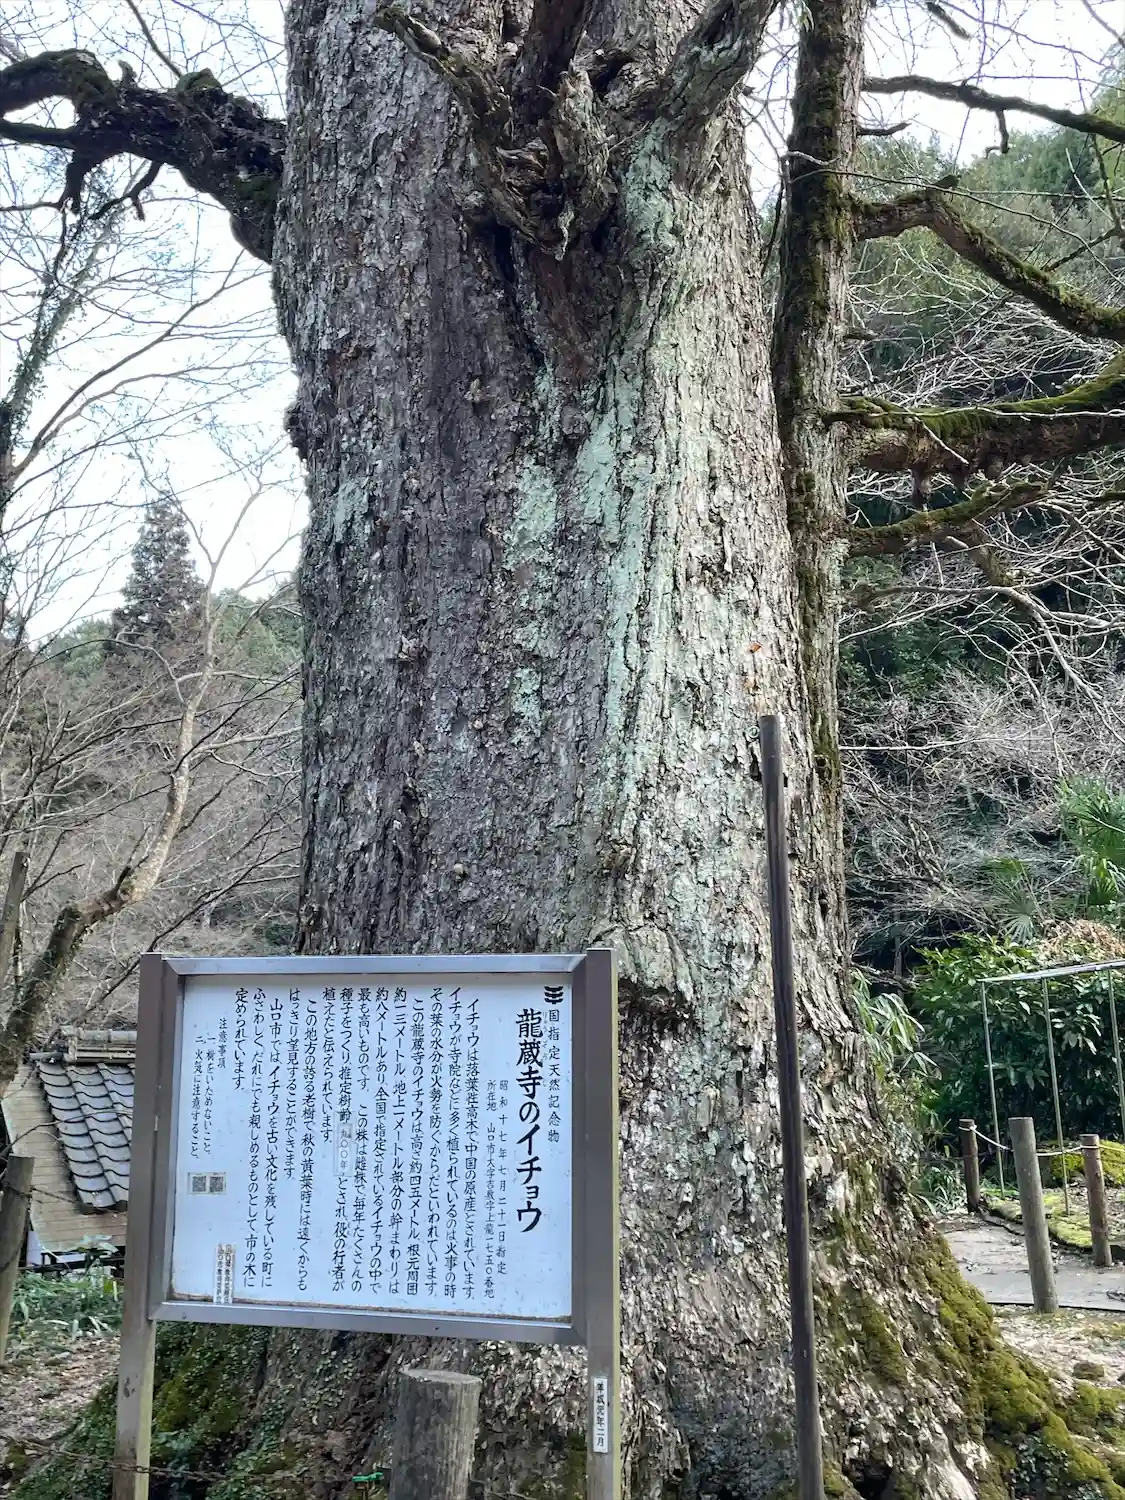 国指定天然記念物
龍蔵寺のイチョウ
昭和十七年七月二十一日指定
所在地 山口市大字吉敷字上東一七五〇番地
イチョウは落葉性高木で中国の原産とされています。
イチョウが寺院などに多く植られているのは火事の時
その葉の水分が火勢を防ぐからだといわれています。
この龍蔵寺のイチョウは高さ約四五メートル、根元周囲
約一三メートル、地上一メートル部分の幹まわりは
約八メートルあり全国で指定されているイチョウの中で
最も高いものです。この株は雌株で毎年たくさんの
種子をつくり推定樹齢九〇〇年とされ、役の行者が
植えたと伝えられています。
この地方の誇る老樹で秋の黄葉時には遠くからも
はっきり望見することができます。
山口市では、イチョウを古い文化を残している町に
ふさわしく、だれにでも親しめるものとして、市の木に
定められています。
注意事項
一、樹をいためないこと。
二、火気に注意すること。
平成元年二月